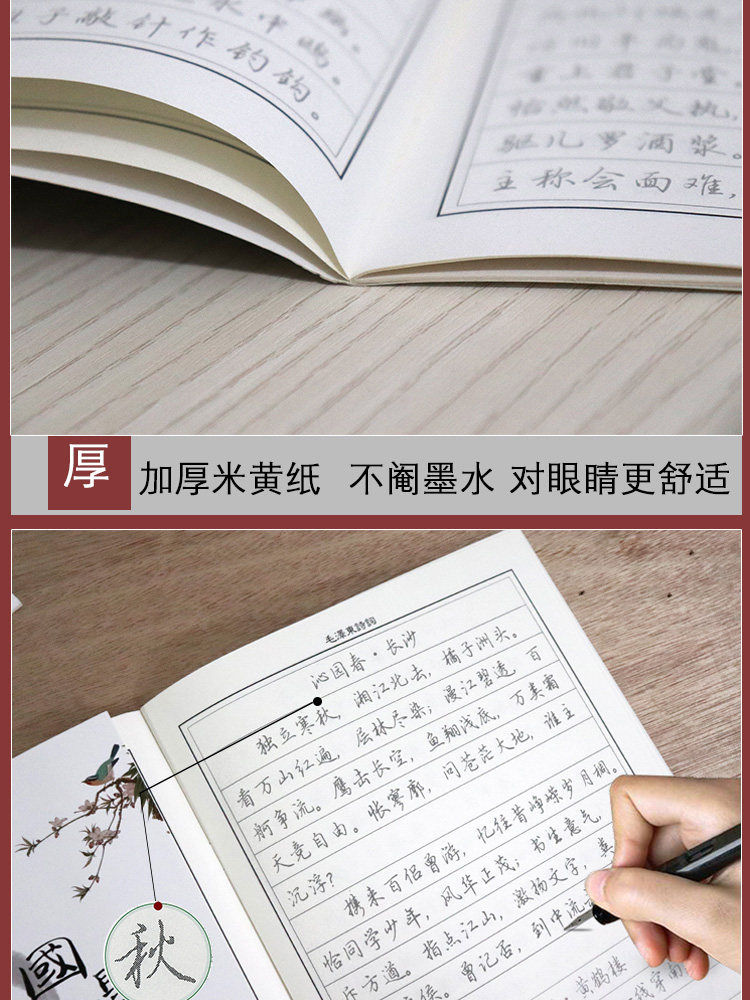 子敲针作钓钩。
重上君子堂。
怡然敬父执,
驱儿罗酒浆。
主称会面难,
厚 加厚米黄纸 不阉墨水 对眼睛更舒适
毛澤東詩詞
沁园春·长沙
独立寒秋,湘江北去,橘子洲头。
看万山红遍,层林尽染;漫江碧透,百
舸争流。鹰击长空,鱼翔浅底,万类霜
天竞自由。怅寥廓,问苍茫大地,谁主
沉浮?
携来百侣曾游,忆往昔峥嵘岁月稠。
恰同学少年,风华正茂;书生意气,
斥方遒。指点江山,激扬文字,粪
侯。曾记否,到中流
黄鹤楼
穿南
國
秋